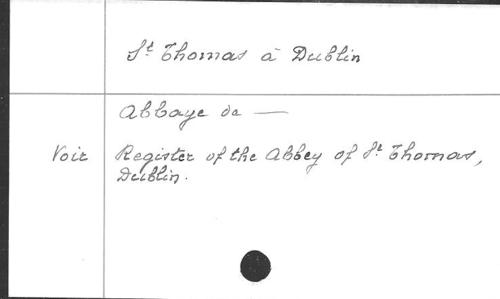 St Thomas à Dublin
Abbaye de —
Voir Register of the Abbey of St Thomas,
Dublin.